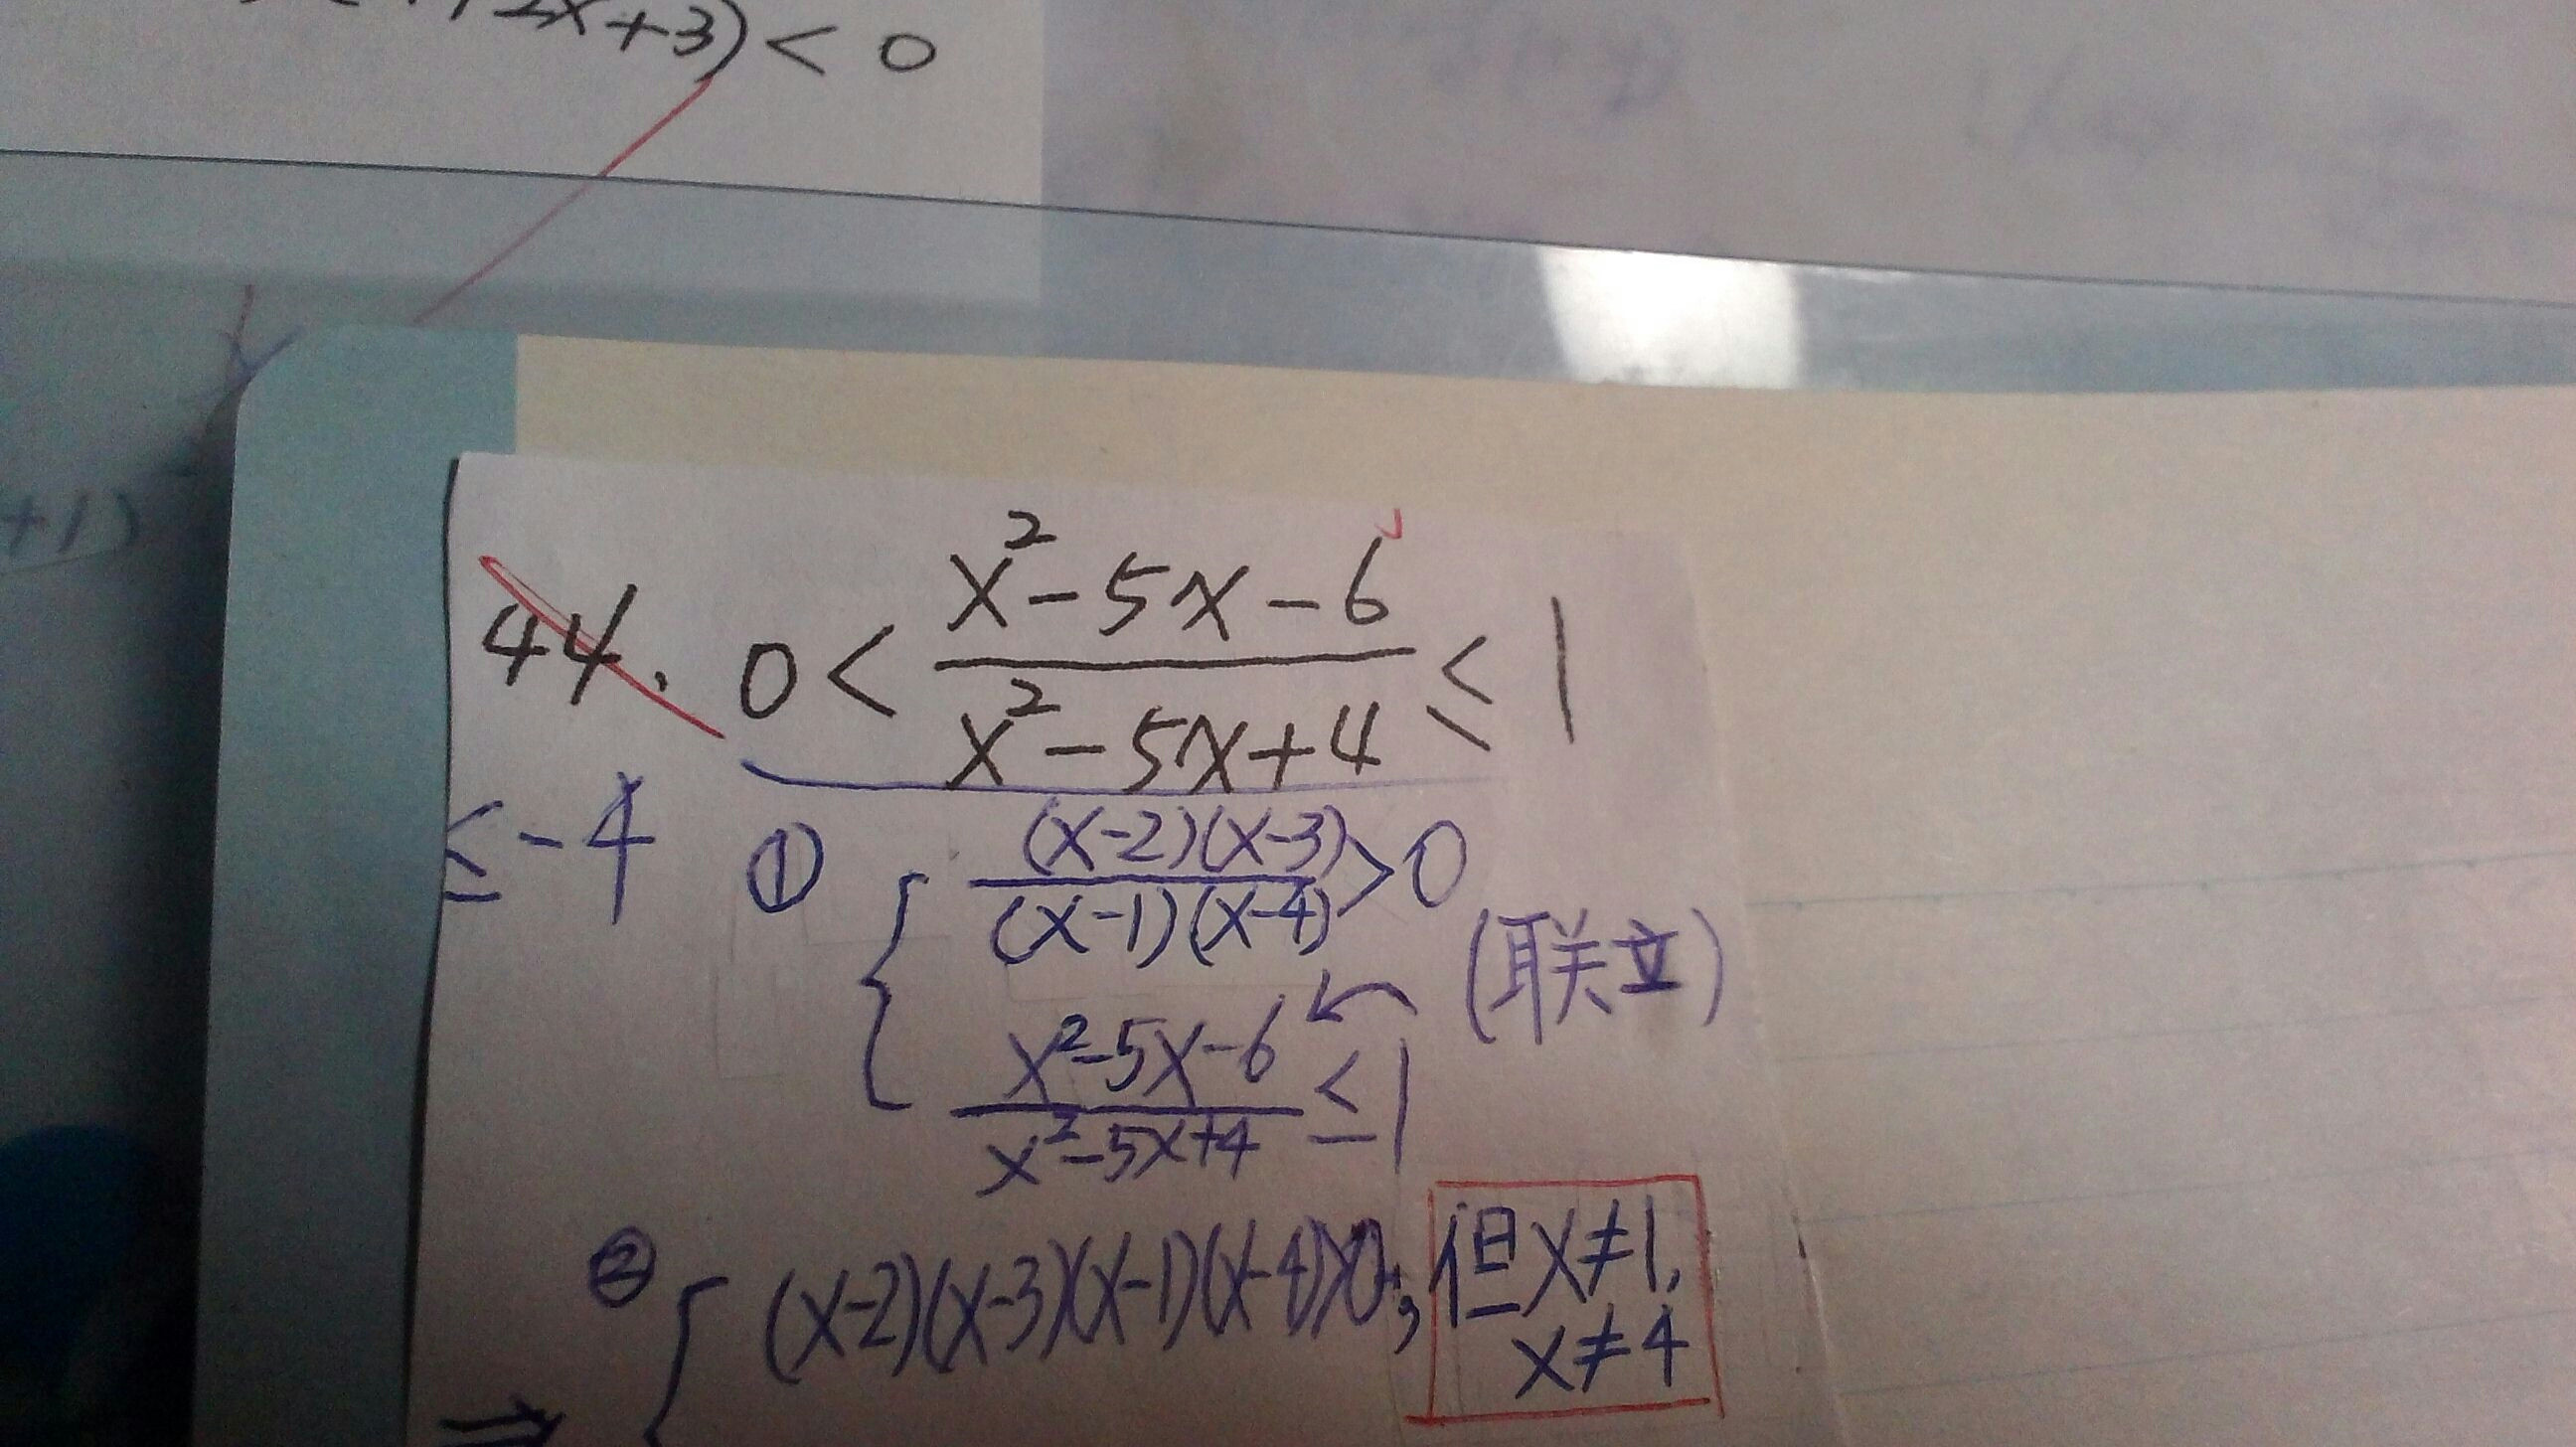 2x+3) < 0
+1)
44. 0 < \frac{x^2-5x-6}{x^2-5x+4} ≤ 1
≤ -4 ① { \frac{(x-2)(x-3)}{(x-1)(x-4)} > 0
(联立)
\frac{x^2-5x-6}{x^2-5x+4} ≤ 1
② { (x-2)(x-3)(x-1)(x-4)>0; 但x≠1,
x≠4
⇒